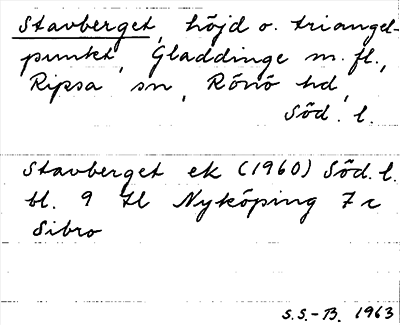 Stavberget, höjd o. triangel-
punkt, Gladdinge m. fl.,
Ripsa sn, Rönö hd,
Söd. l.
Stavberget ek (1960) Söd. l.
bl. 9 Il Nyköping 7 c
Sibro
S.S.-B. 1963